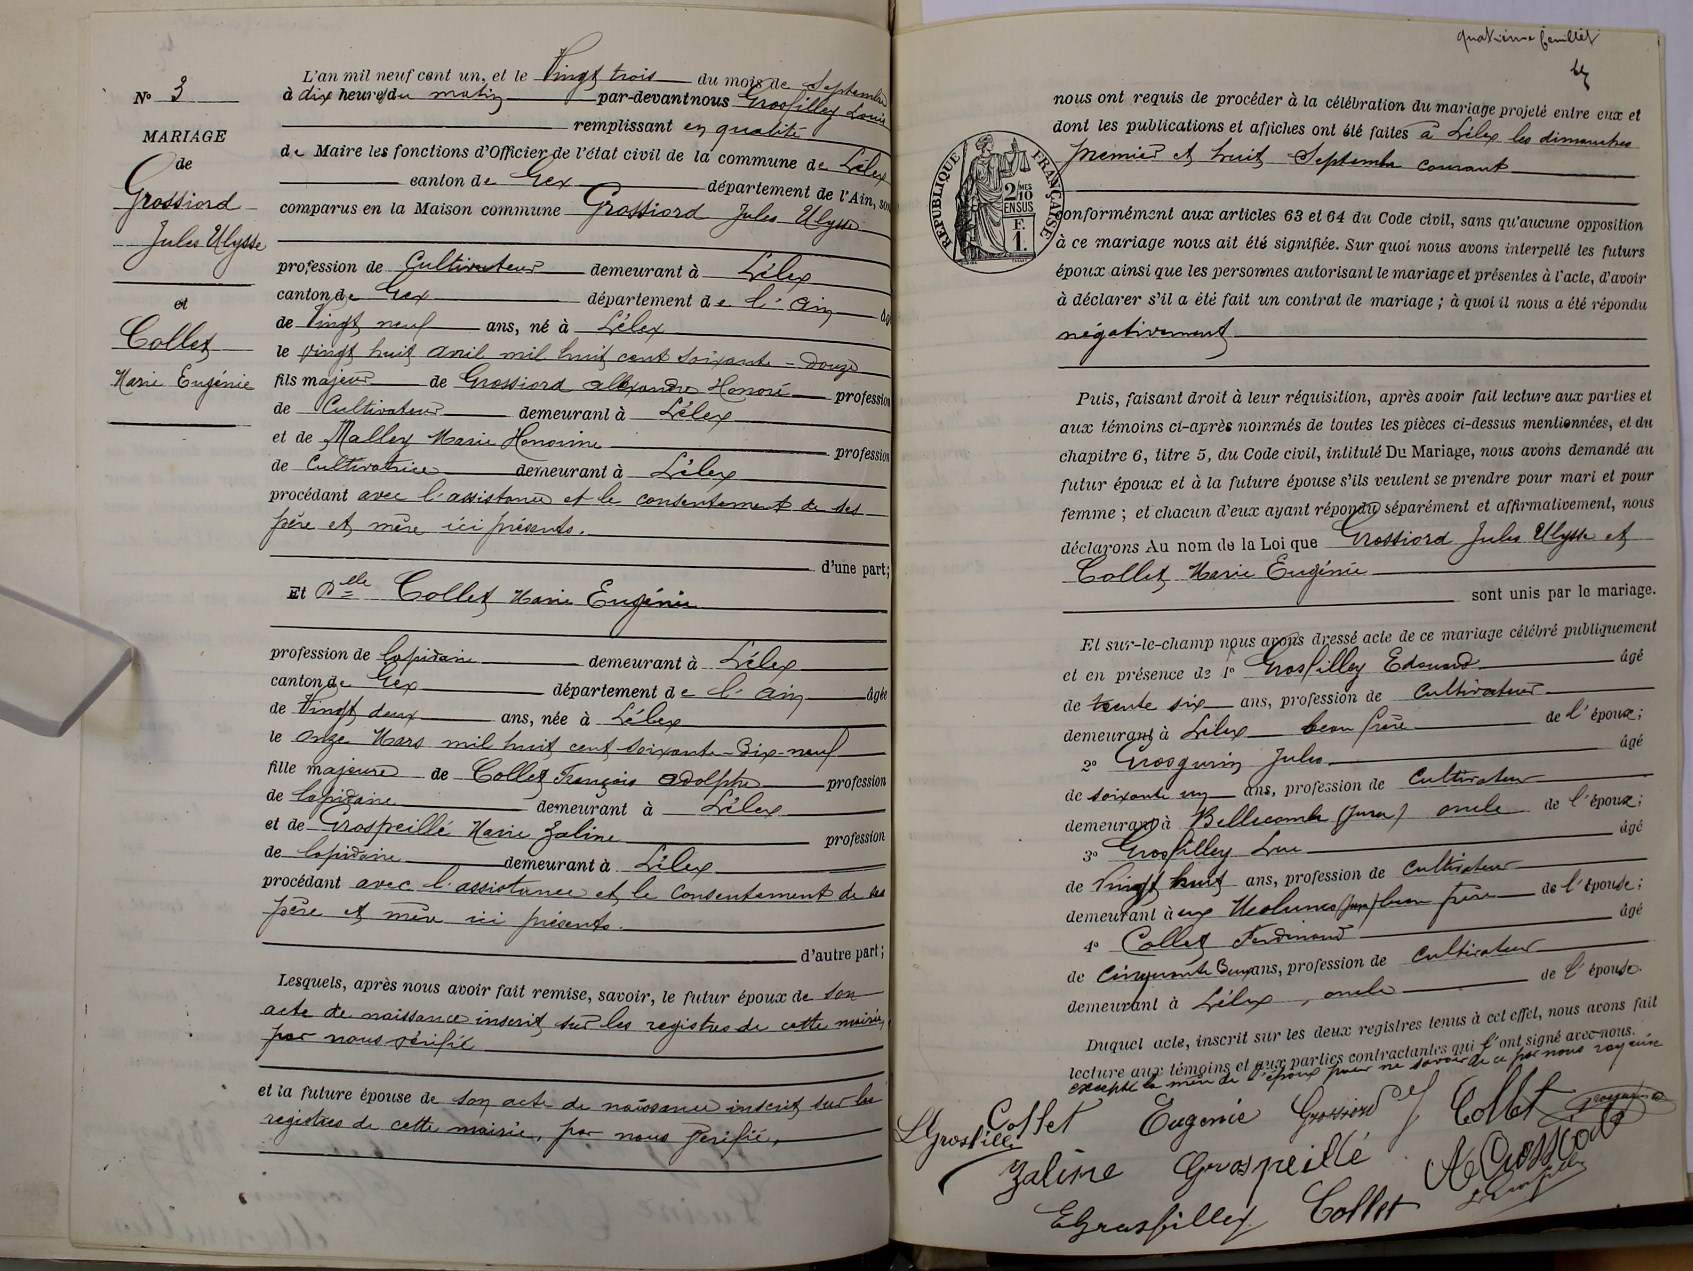 N° 3
MARIAGE
de
Grossiord
Jules Ulysse
et
Collet
Marie Eugénie
L'an mil neuf cent un, et le Vingt trois du mois de Septembre
à dix heures du matin par-devant nous Grosfilley Louis
remplissant en qualité
de Maire les fonctions d'Officier de l'état civil de la commune de Lélex
canton de Gex département de l'Ain, sont
comparus en la Maison commune Grossiord Jules Ulysse
profession de Cultivateur demeurant à Lélex
canton de Gex département de l'Ain âgé
de Vingt neuf ans, né à Lélex
le vingt huit avril mil huit cent soixante-douze
fils majeur de Grossiord Alexandre Honoré profession
de Cultivateur demeurant à Lélex
et de Malley Marie Honorine profession
de Cultivatrice demeurant à Lélex
procédant avec l'assistance et le consentement de ses
père et mère ici présents.
d'une part;
Et Delle Collet Marie Eugénie
profession de lapidaire demeurant à Lélex
canton de Gex département de l'Ain âgée
de Vingt deux ans, née à Lélex
le onze Mars mil huit cent soixante-dix-neuf
fille majeure de Collet François Adolphe profession
de lapidaire demeurant à Lélex
et de Grospeillé Marie Zaline profession
de lapidaire demeurant à Lélex
procédant avec l'assistance et le consentement de ses
père et mère ici présents.
d'autre part;
Lesquels, après nous avoir fait remise, savoir, le futur époux de son
acte de naissance inscrit sur les registres de cette mairie,
par nous vérifié
et la future épouse de son acte de naissance inscrit sur les
registres de cette mairie, par nous vérifié,
quatrième feuillet
RÉPUBLIQUE FRANÇAISE
2/10 MES
EN SUS
F.
1.
nous ont requis de procéder à la célébration du mariage projeté entre eux et
dont les publications et affiches ont été faites à Lélex les dimanches
premier et huit Septembre courant
conformément aux articles 63 et 64 du Code civil, sans qu'aucune opposition
à ce mariage nous ait été signifiée. Sur quoi nous avons interpellé les futurs
époux ainsi que les personnes autorisant le mariage et présentes à l'acte, d'avoir
à déclarer s'il a été fait un contrat de mariage; à quoi il nous a été répondu
négativement
Puis, faisant droit à leur réquisition, après avoir fait lecture aux parties et
aux témoins ci-après nommés de toutes les pièces ci-dessus mentionnées, et du
chapitre 6, titre 5, du Code civil, intitulé Du Mariage, nous avons demandé au
futur époux et à la future épouse s'ils veulent se prendre pour mari et pour
femme; et chacun d'eux ayant répondu séparément et affirmativement, nous
déclarons Au nom de la Loi que Grossiord Jules Ulysse et
Collet Marie Eugénie
sont unis par le mariage.
Et sur-le-champ nous avons dressé acte de ce mariage célébré publiquement
et en présence de 1° Grosfilley Edouard âgé
de trente six ans, profession de Cultivateur
demeurant à Lélex beau frère de l'époux;
2° Grosgurin Jules âgé
de soixante un ans, profession de Cultivateur
demeurant à Bellecombe (Jura) oncle de l'époux;
3° Grosfilley Luc âgé
de Vingt huit ans, profession de Cultivateur
demeurant à aux Molunes (Jura) beau frère de l'épouse;
4° Collet Ferdinand âgé
de Cinquante deux ans, profession de Cultivateur
demeurant à Lélex, oncle de l'épouse.
Duquel acte, inscrit sur les deux registres tenus à cet effet, nous avons fait
lecture aux témoins et aux parties contractantes qui l'ont signé avec nous.
excepté la mère de l'époux pour ne savoir de ce par nous requise
Collet Eugénie Grossiord J Collet
L Grosfilley
Zaline Grospeillé A Grossiord
E Grosfilley Collet L Grosfilley